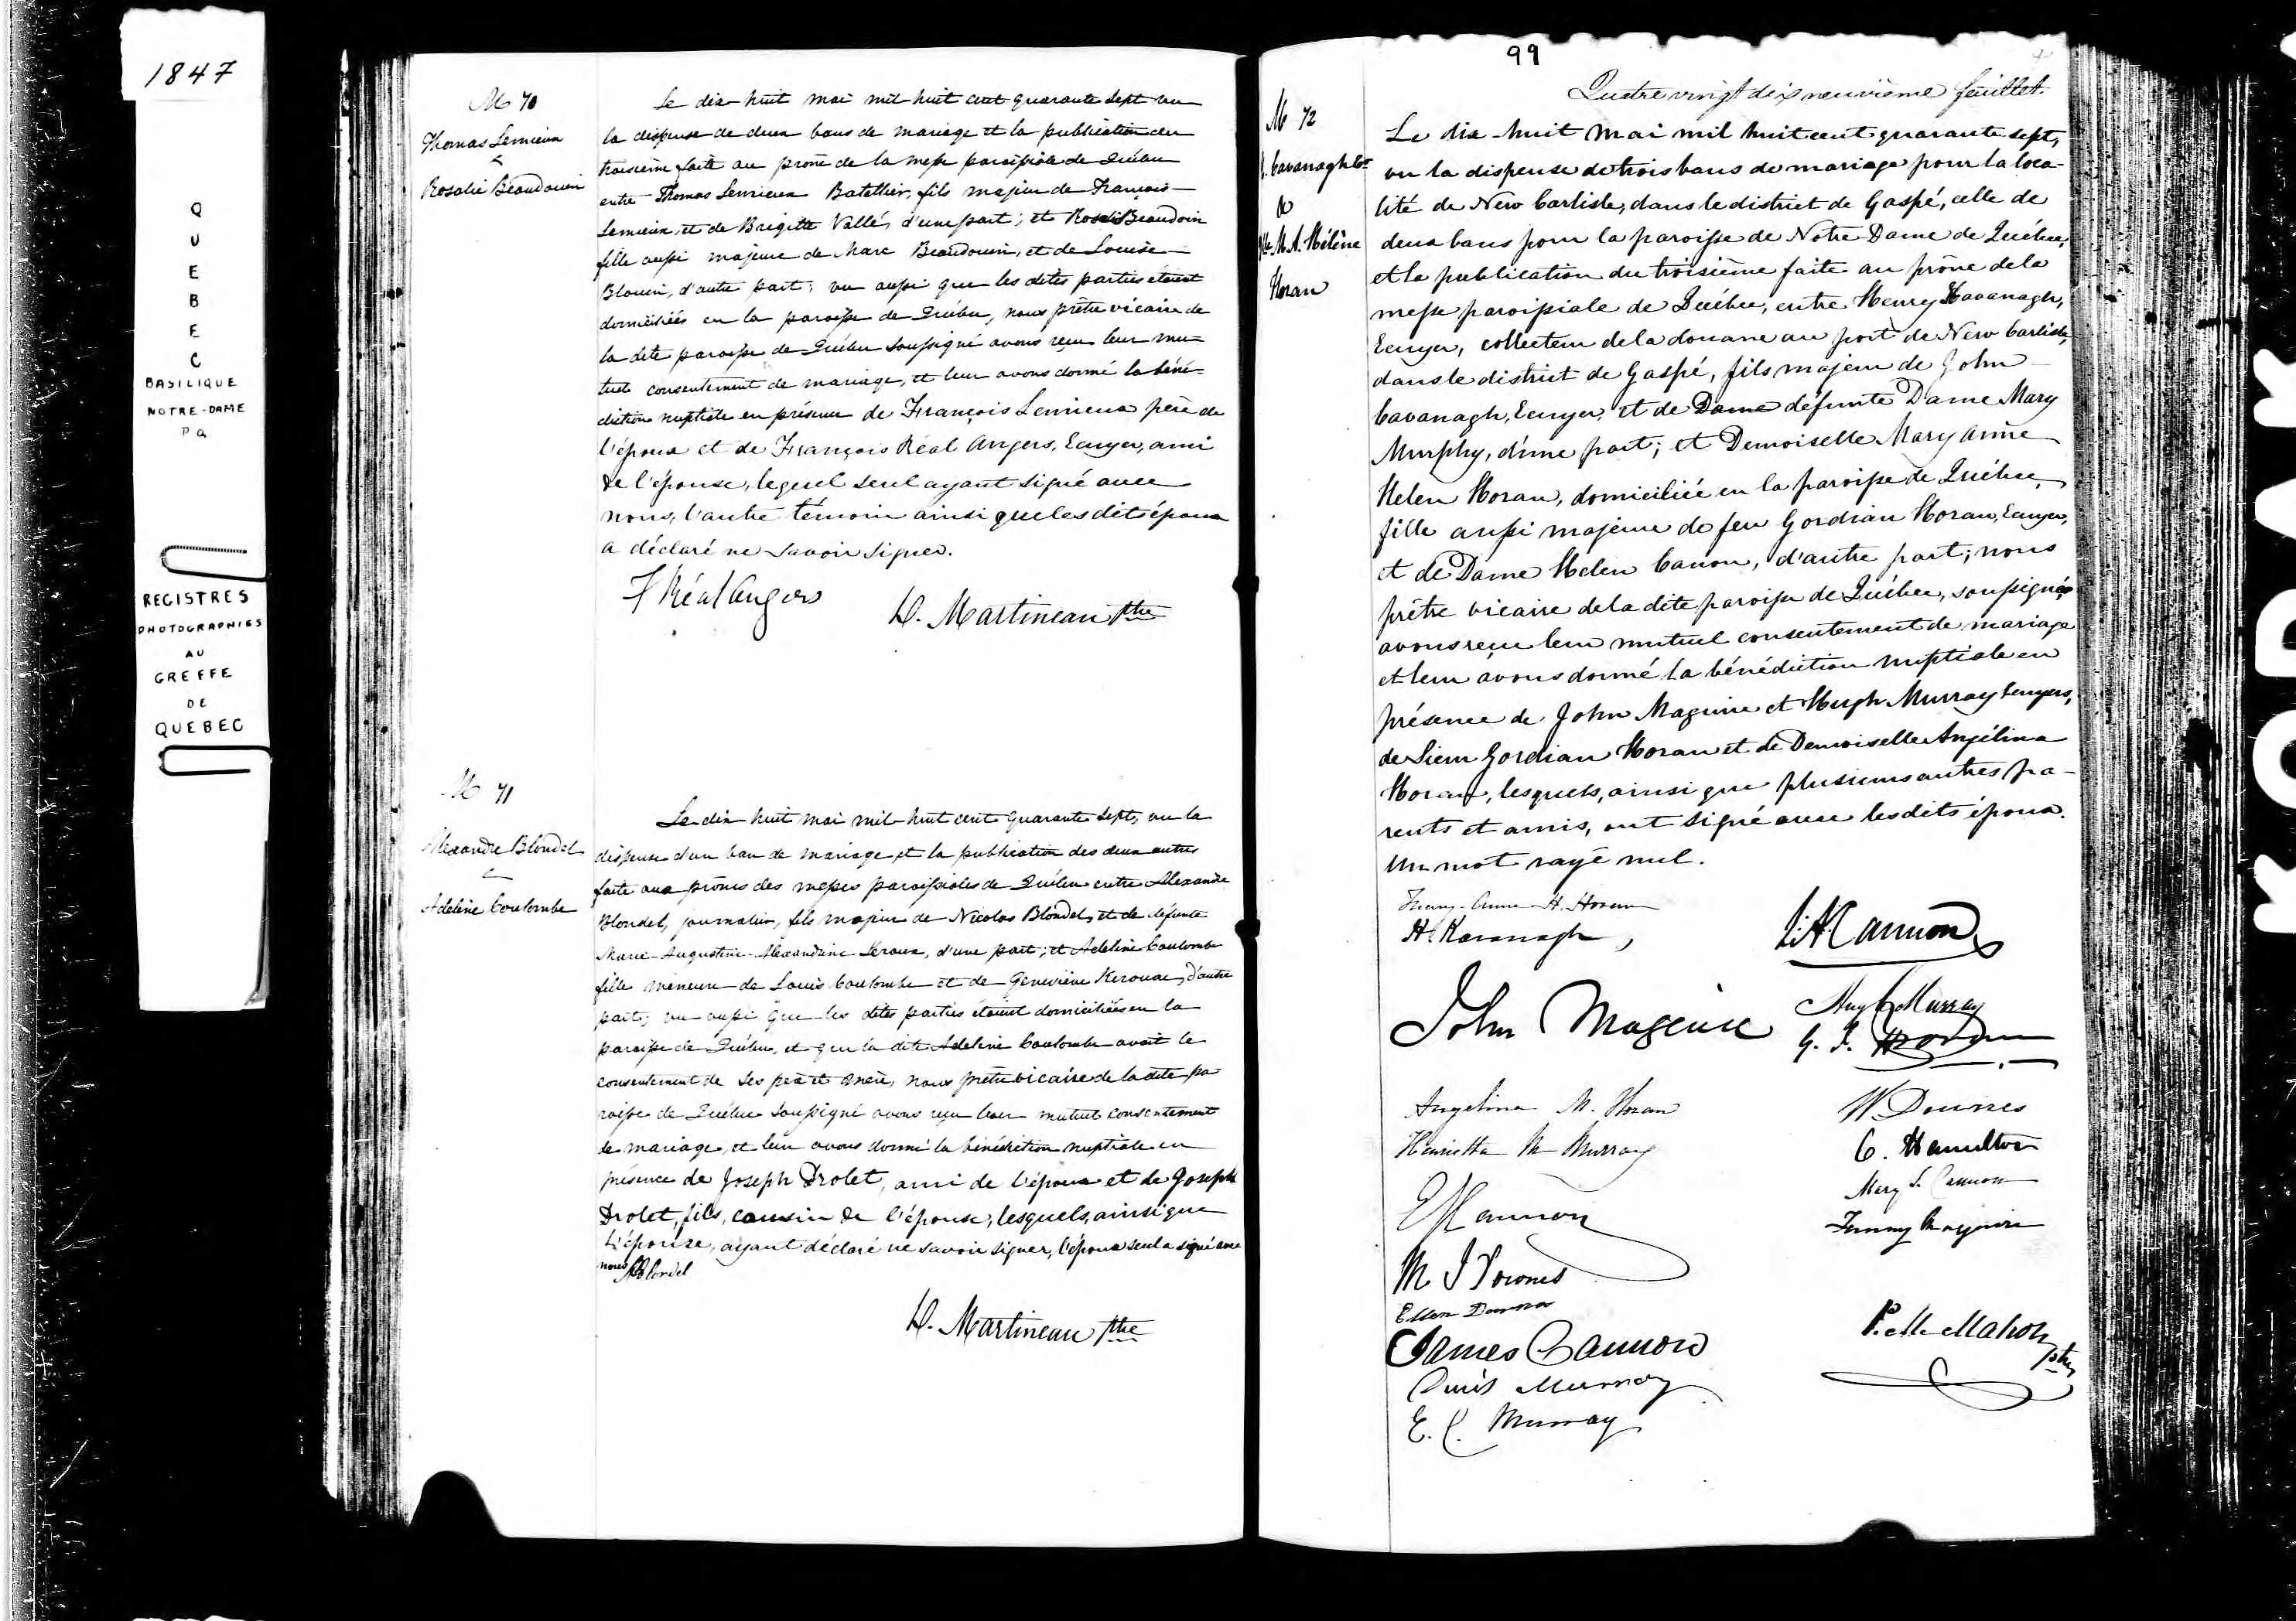 1847
QUEBEC
BASILIQUE
NOTRE-DAME
PQ
REGISTRES
PHOTOGRAPHIES
AU
GREFFE
DE
QUEBEC
M 70
Thomas Lemieux
&
Rosalie Beaudouin
Le dix-huit mai mil-huit cent quarante sept vu
la dispense de deux bans de mariage et la publication du
troisième faite au prône de la messe paroissiale de Québec
entre Thomas Lemieux Batellier, fils majeur de François
Lemieux, et de Brigitte Vallé, d'une part; et Rosalie Beaudoin
fille aussi majeure de Marc Beaudouin, et de Louise
Blouin, d'autre part; vu aussi que les dites parties étaient
domiciliées en la paroisse de Québec, nous prêtre vicaire de
la dite paroisse de Québec soussigné avons reçu leur mu-
tuel consentement de mariage, et leur avons donné la béné-
diction nuptiale en présence de François Lemieux père de
l'époux et de François Réal Angers, Ecuyer, ami
de l'épouse, lequel seul ayant signé avec
nous, l'autre témoin ainsi que les dits époux
a déclaré ne savoir signer.
F Réal Angers
D. Martineau Ptre
M 71
Alexandre Blondel
&
Adeline Coulombe
Le dix huit mai mil-huit cent quarante sept, vu la
dispense d'un ban de mariage et la publication des deux autres
faite aux prônes des messes paroissiales de Québec entre Alexandre
Blondel, journalier, fils majeur de Nicolas Blondel, et de défunte
Marie-Augustine-Alexandrine Leroux, d'une part; et Adeline Coulombe
fille mineure de Louis Coulombe et de Geneviève Kerouac, d'autre
part; vu aussi que les dites parties étaient domiciliées en la
paroisse de Québec, et que la dite Adeline Coulombe avait le
consentement de ses père et mère, nous prêtre vicaire de la dite pa
roisse de Québec soussigné avons reçu leur mutuel consentement
de mariage, et leur avons donné la bénédiction nuptiale en
présence de Joseph Drolet, ami de l'époux et de Joseph
Drolet, fils, cousin de l'épouse, lesquels, ainsi que
l'épouse, ayant déclaré ne savoir signer, l'époux seul a signé avec
nous
A Blondel
D. Martineau Ptre
99
Quatre vingt dix neuvième feuillet.
M 72
H. Cavanagh Ecr
&
Dlle M. A. Hélène
Horan
Le dix-huit mai mil huit cent quarante sept,
vu la dispense de trois bans de mariage pour la loca-
lité de New Carlisle, dans le district de Gaspé, celle de
deux bans pour la paroisse de Notre Dame de Québec,
et la publication du troisième faite au prône de la
messe paroissiale de Québec, entre Henry Kavanagh,
Ecuyer, collecteur de la douane au port de New Carlisle,
dans le district de Gaspé, fils majeur de John
Cavanagh, Ecuyer, et de Dame défunte Dame Mary
Murphy, d'une part; et Demoiselle Mary Anne
Helen Horan, domiciliée en la paroisse de Québec,
fille aussi majeure de feu Gordian Horan, Ecuyer,
et de Dame Helen Canon, d'autre part; nous
prêtre vicaire de la dite paroisse de Québec, soussigné,
avons reçu leur mutuel consentement de mariage
et leur avons donné la bénédiction nuptiale en
présence de John Maguire et Hugh Murray Ecuyers,
de Sieur Gordian Horan et de Demoiselle Angélina
Horan, lesquels, ainsi que plusieurs autres pa-
rents et amis, ont signé avec les dits époux.
Un mot rayé nul.
Mary-Anne H. Horan
H. Kavanagh,
Cannon
John Maguire
Hugh Murray
G. Horan
Angelina M. Horan
W. Downes
Henrietta M Murray
C. Hamilton
Mary S. Cannon
Cannon
Fanny Maguire
M J Downes
Ellen Downes
James Cannon
P. McMahon Ptre
Murray
E. C. Murray
KODAK